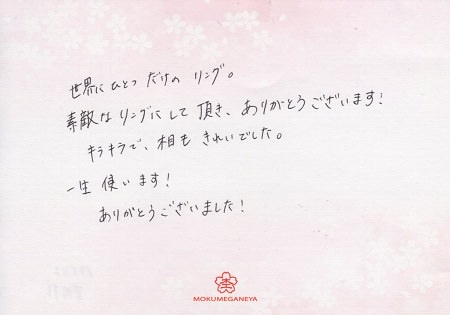 世界にひとつ だけの リング。
素敵な リングに して 頂き、ありがとうございます!
キラキラで、相も きれいでした。
一生 使います!
ありがとうございました!
MOKUMEGANEYA